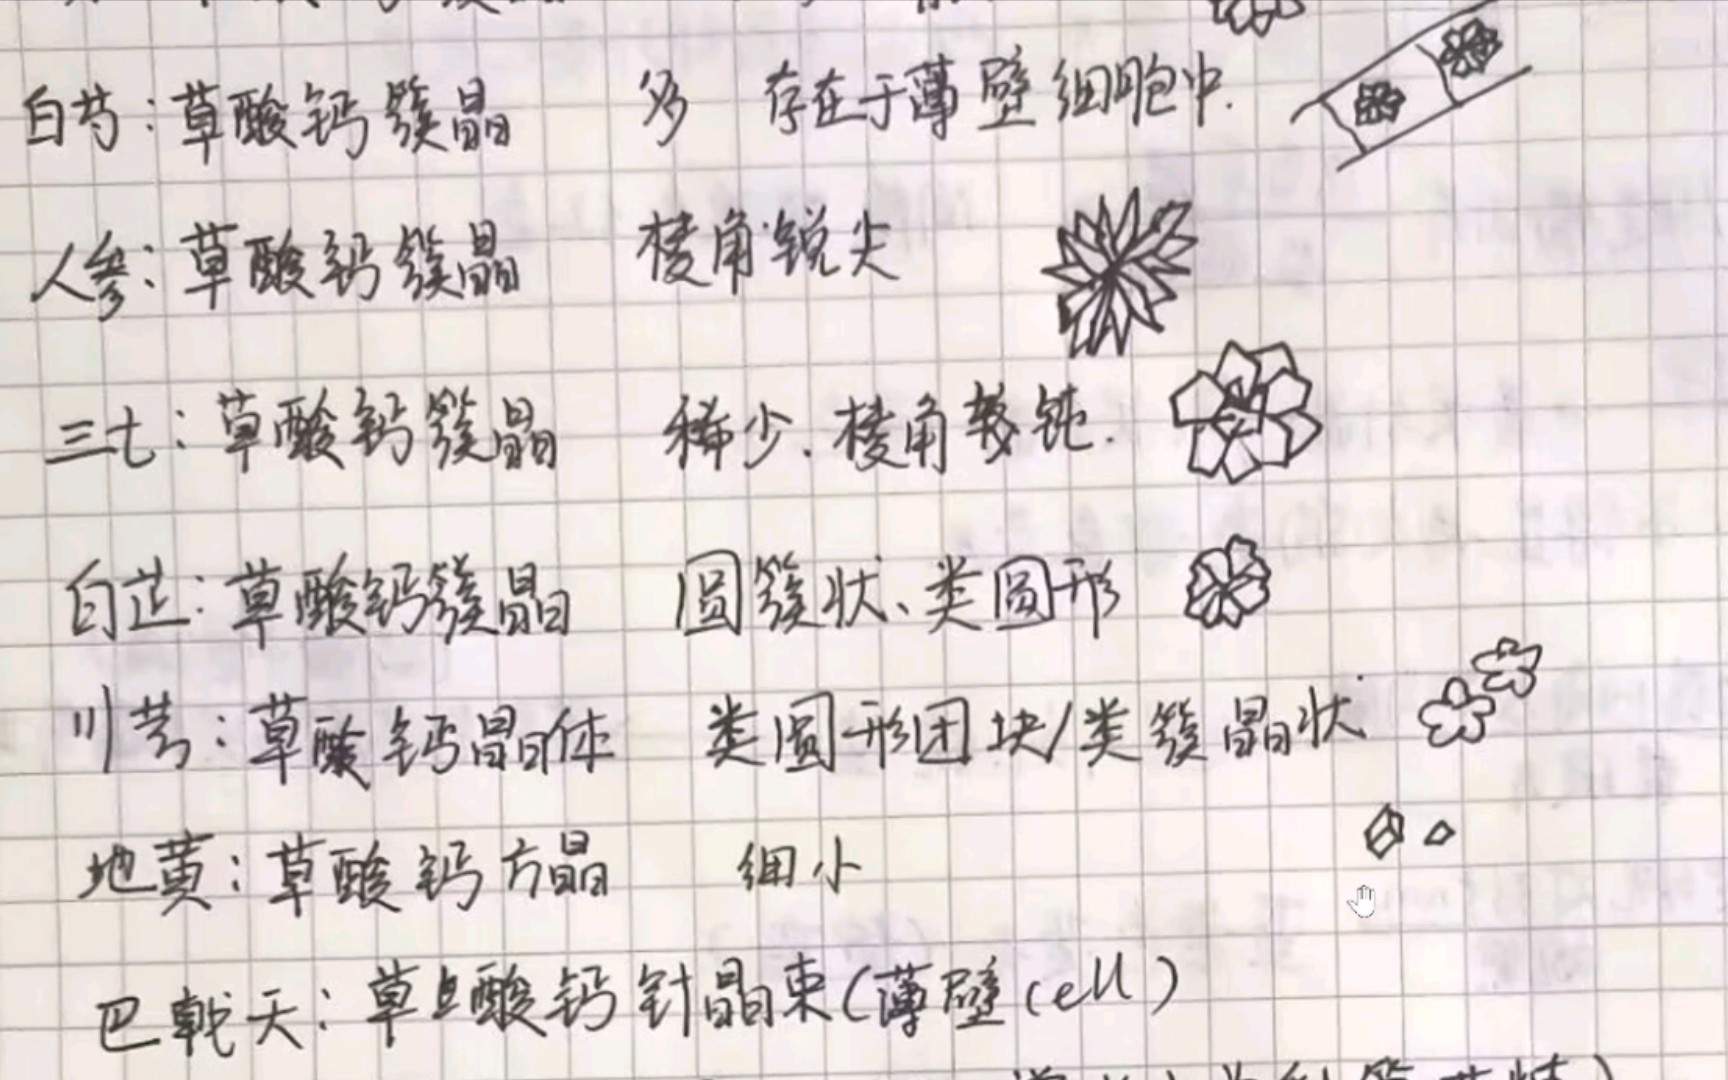 白芍：草酸钙簇晶 多 存在于薄壁细胞中.
人参：草酸钙簇晶 棱角锐尖
三七：草酸钙簇晶 稀少.棱角较钝.
白芷：草酸钙簇晶 圆簇状、类圆形
川芎：草酸钙晶体 类圆形团块/类簇晶状
地黄：草酸钙方晶 细小
巴戟天：草酸钙针晶束(薄壁cell)